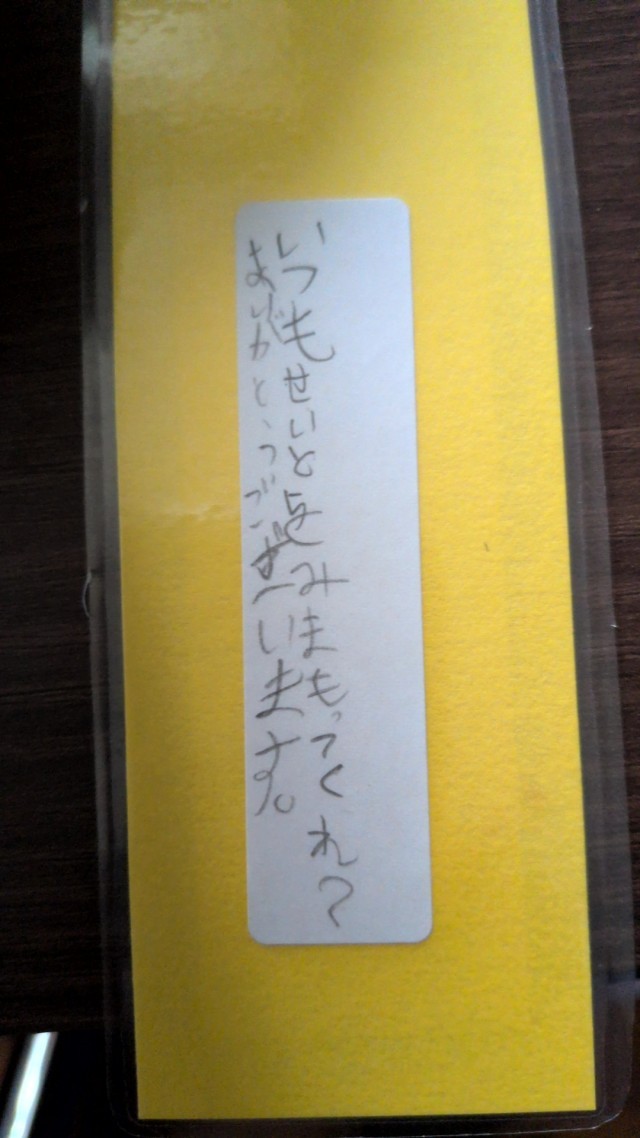 いつもせいとをみまもってくれて
ありがとうございます。